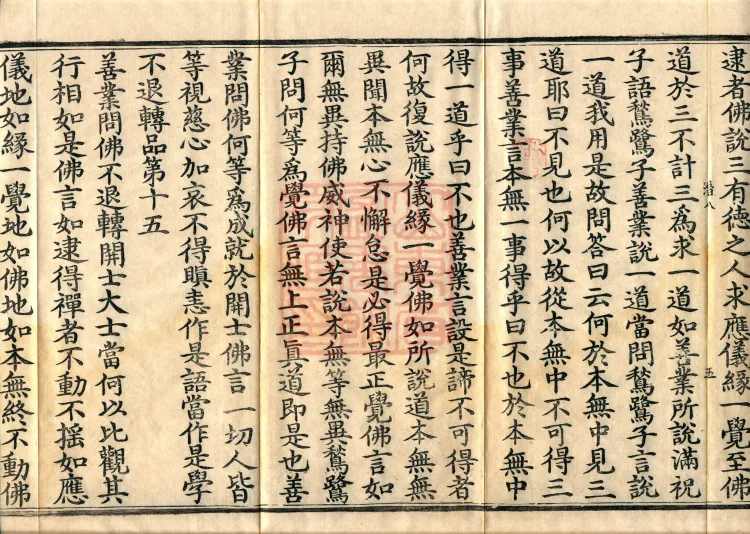 逮者佛說三有德之人求應儀緣一覺至佛
道於三不計三為求一道如善業所說滿祝
子語鶖鷺子善業說一道當問鶖鷺子言說
一道我用是故問答曰云何於本無中見三
道耶曰不見也何以故從本無中不可得三
事善業言本無一事得乎曰不也於本無中
得一道乎曰不也善業言設是諦不可得者
何故復說應儀緣一覺佛如所說道本無無
異聞本無心不懈怠是必得最正覺佛言如
爾無異持佛威神使若說本無等無異鶖鷺
子問何等為覺佛言無上正真道即是也善
業問佛何等為成就於開士佛言一切人皆
等視慈心加哀不得瞋恚作是語當作是學
不退轉品第十五
善業問佛不退轉開士大士當何以比觀其
行相如是佛言如逮得禪者不動不搖如應
儀地如緣一覺地如佛地如本無終不動佛
潜八
五